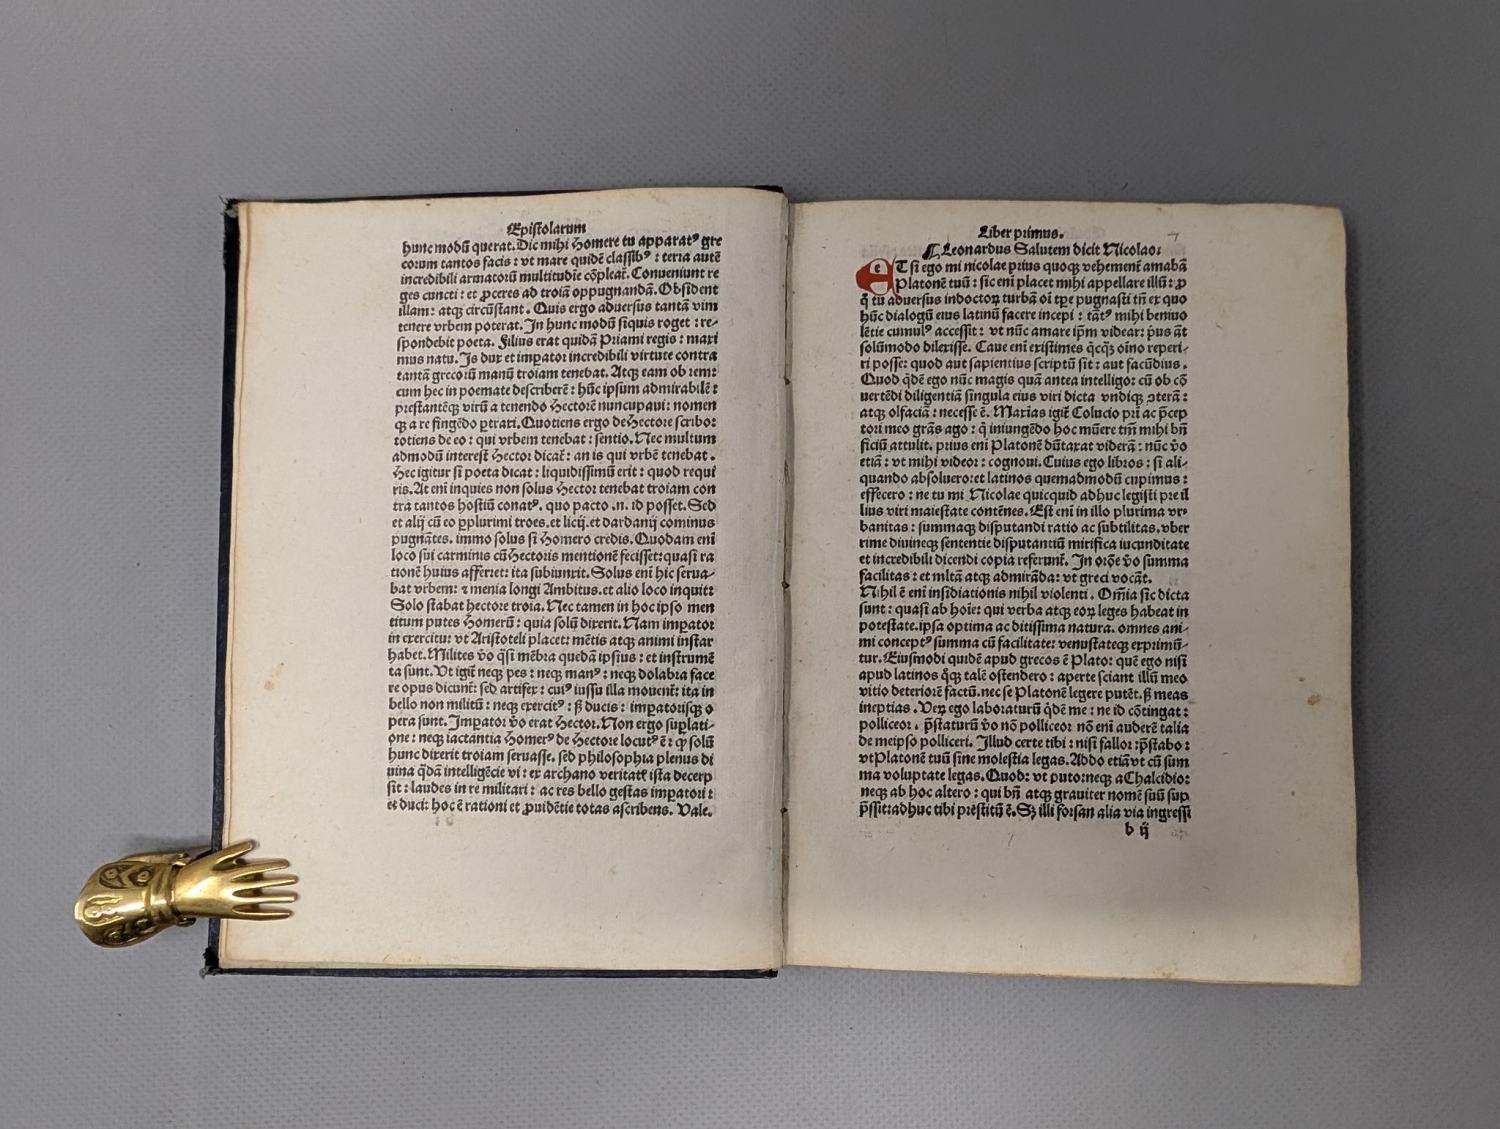 Epistolarum
hunc modū querat. Dic mihi Homere tu apparatꝰ gre
corum tantos facis : vt mare quidē classibꝰ : terrā autē
incredibili armatorū multitudīe cōpleat̄. Conueniunt re
ges cuncti : et ꝓceres ad troiā oppugnandā. Obsident
illam : atqꝫ circūstant. Quis ergo aduersus tantā vim
tenere vrbem poterat. In hunc modū siquis roget : re⸗
spondebit poeta. Filius erat quidā Priami regis : maxi
mus natu. Is dux et imꝑator incredibili virtute contra
tantā grecorū manū troiam tenebat. Atqꝫ eam ob rem :
cum hec in poemate describerē : hūc ipsum admirabilē :
prestantēqꝫ virū a tenendo Hectorē nuncupaui : nomen
qꝫ a re fingēdo ꝑtraxi. Quotiens ergo de Hectore scribo :
totiens de eo : qui vrbem tenebat : sentio. Nec multum
admodū interest Hector dicat̄ : an is qui vrbē tenebat .
Hec igitur si poeta dicat : liquidissimū erit : quod requi
ris. At enī inquies non solus Hector tenebat troiam con
tra tantos hostiū conatꝰ. quo pacto .n. id posset. Sed
et alij cū eo ꝑplurimi troes. et licij. et dardanij cominus
pugnātes. immo solus si Homero credis. Quodam enī
loco sui carminis cū Hectoris mentionē fecisset : quasi ra
tionē huius afferret : ita subiunxit. Solus enī hic serua⸗
bat vrbem : ⁊ menia longi Ambitus. et alio loco inquit :
Solo stabat hectore troia. Nec tamen in hoc ipso men
titum putes Homerū : quia solū dixerit. Nam imꝑator
in exercitu : vt Aristoteli placet : mētis atqꝫ animi instar
habet. Milites v̄o q̄si mēbra quedā ipsius : et instrumē
ta sunt. Vt igit̄ neqꝫ pes : neqꝫ manꝰ : neqꝫ dolabra face
re opus dicunt̄ : sed artifex : cuiꝰ iussu illa mouent̄ : ita in
bello non militū : neqꝫ exercitꝰ : sꝫ ducis : imꝑatorisqꝫ o
pera sunt. Imꝑator v̄o erat Hector. Non ergo suꝑlati⸗
one : neqꝫ iactantia Homerꝰ de Hectore locutꝰ ē : ꝙ solū
hunc dixerit troiam seruasse. sed philosophia plenus di
uina q̄dā intelligēcie vi : ex archano veritatē ista decerp
sit : laudes in re militari : ac res bello gestas imꝑatori :
et duci : hoc ē rationi et ꝓuidētie totas ascribens. Vale.
Liber primus.
7
¶ Leonardus Salutem dicit Nicolao :
e
ET si ego mi nicolae prius quoqꝫ vehement̄ amabā
Platonē tuū : sic enī placet mihi appellare illū : ꝓ
q̄ tu aduersus indoctoꝝ turbā oī tꝑe pugnasti tn̄ ex quo
hūc dialogū eius latinū facere incepi : tātꝰ mihi beniuo
lētie cumulꝰ accessit : vt nūc amare ip̄m videar : p̄us āt
solūmodo dilexisse. Caue enī existimes q̄cqꝫ oīno reperi⸗
ri posse : quod aut sapientius scriptū sit : aut facūdius .
Quod q̄dē ego nūc magis quā antea intelligo : cū ob cō
uertēdi diligentiā singula eius viri dicta vndiqꝫ ꝯterā :
atqꝫ olfaciā : necesse ē. Maxīas igit̄ Colucio pr̄i ac p̄cep
tori meo grās ago : q̄ iniungēdo hoc mūere tm̄ mihi bn̄
ficiū attulit. prius enī Platonē dūtaxat viderā : nūc v̄o
etiā : vt mihi videor : cognoui. Cuius ego libros : si ali⸗
quando absoluero : et latinos quemadmodū cupimus :
effecero : ne tu mi Nicolae quicquid adhuc legisti pre il
lius viri maiestate contēnes. Est enī in illo plurima vr⸗
banitas : summaqꝫ disputandi ratio ac subtilitas. vber
rime diuineqꝫ sententie disputantiū mirifica iucunditate
et incredibili dicendi copia referunt̄. In or̄oē v̄o summa
facilitas : et mltā atqꝫ admirāda : vt greci vocāt.
Nihil ē enī insidiationis nihil violenti . Om̄ia sic dicta
sunt : quasi ab hoīe : qui verba atqꝫ eoꝝ leges habeat in
potestate. ipsa optima ac ditissima natura. omnes ani⸗
mi conceptꝰ summa cū facilitate : venustateqꝫ exprimū⸗
tur. Eiusmodi quidē apud grecos ē Plato : quē ego nisi
apud latinos q̄qꝫ talē ostendero : aperte sciant illū meo
vitio deteriorē factū. nec se Platonē legere putēt. sꝫ meas
ineptias . Veꝝ ego laboraturū q̄dē me : ne id cōtingat :
polliceor . p̄staturū v̄o nō polliceor nō enī auderē talia
de meipso polliceri. Illud certe tibi : nisi fallor : p̄stabo :
vt Platonē tuū sine molestia legas. Addo etiā vt cū sum
ma voluptate legas. Quod : vt puto : neqꝫ a Chalcidio :
neqꝫ ab hoc altero : qui bn̄ atqꝫ grauiter nomē suū sup
p̄ssit : adhuc tibi prestitū ē. Sꝫ illi forsan alia via ingressi
b ij